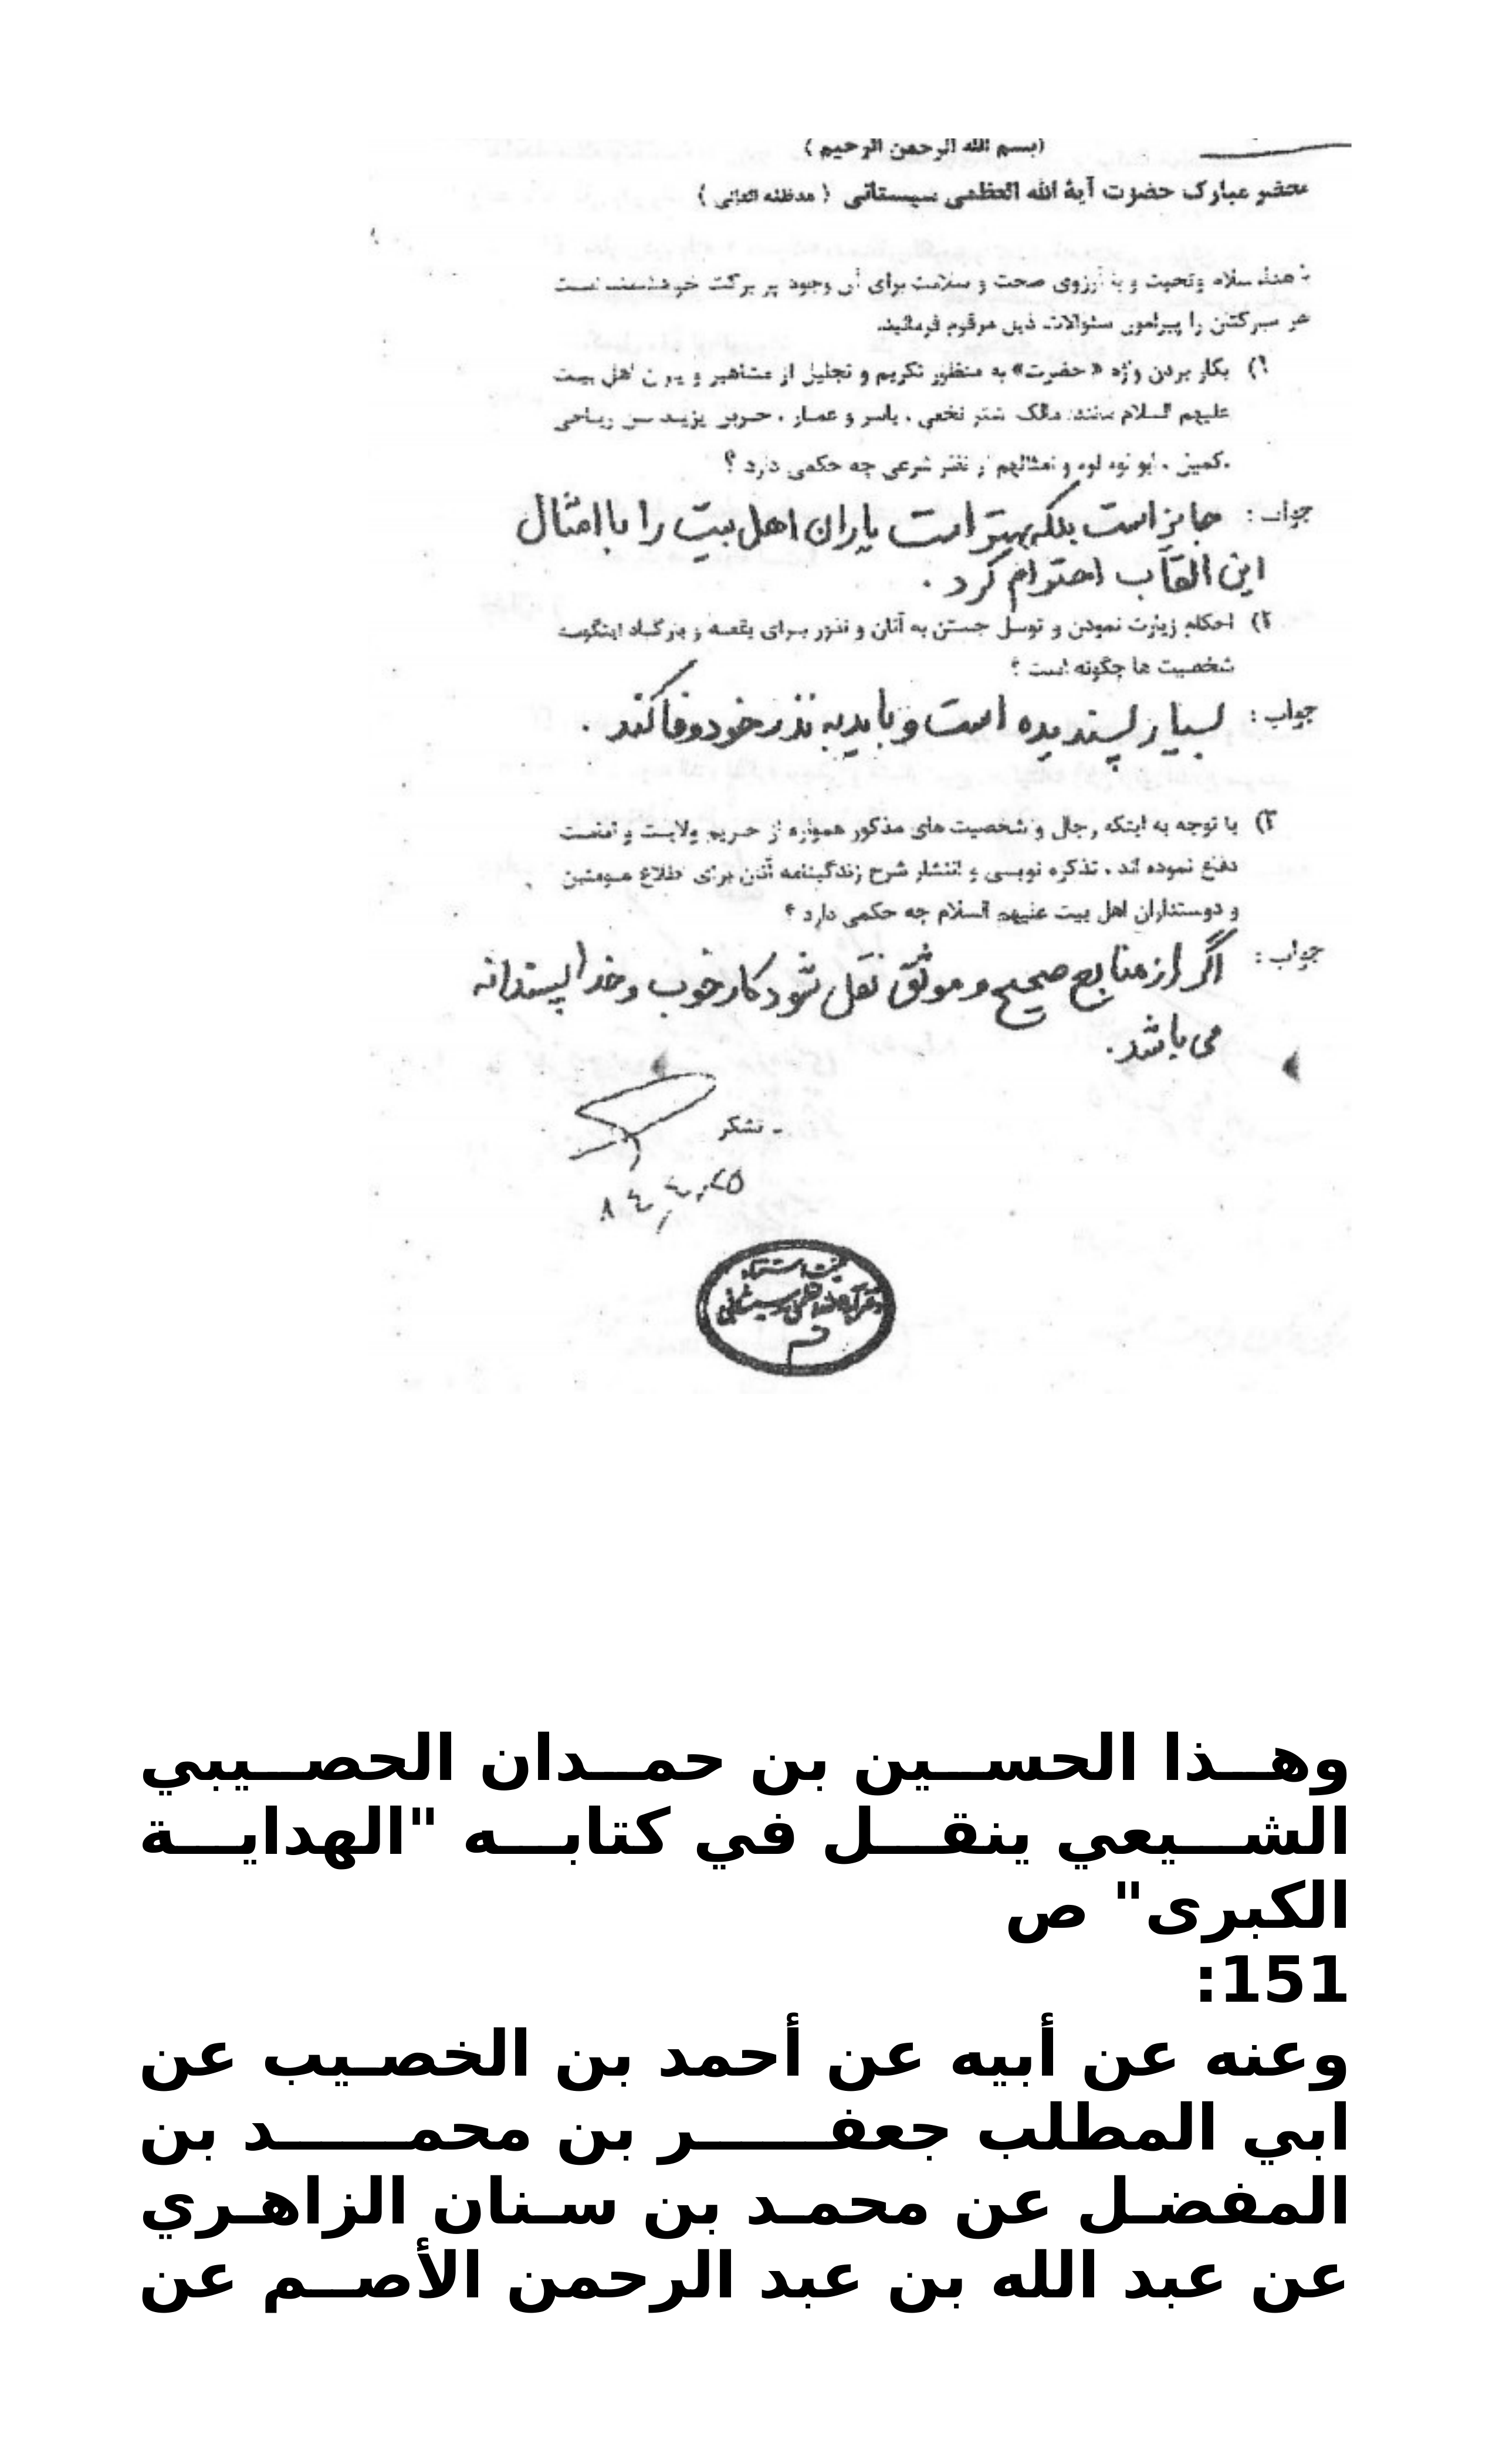 (بسم الله الرحمن الرحيم )
محضر مبارک حضرت آية الله العظمی سیستانی ( مدظله العالی )
سلام وتحيت و با آرزوی صحت و سلامت برای آن وجود پر برکت خواهشمند است
را پیرامون سئوالات ذیل مرقوم فرمائید.
۱) بکار بردن واژه «حضرت» به منظور تکریم و تجلیل از مشاهیر و یاران اهل بیت
علیهم السلام مانند: مالک اشتر نخعی ، یاسر و عمار ، حربن یزید بن ریاحی
،کمیل ، و امثالهم از نظر شرعی چه حکمی دارد ؟
جواب : جایز است بلکه بهتر است یاران اهل بیت را با امثال
این القاب احترام کرد .
۲) احکام زیارت نمودن و توسل جستن به آنان و نذور برای بقعه و بارگاه اینگونه
شخصیت ها چگونه است ؟
جواب : بسیار پسندیده است و باید به نذر خود وفا کند .
۳) با توجه به اینکه رجال و شخصیت های مذکور همواره از حریم ولایت و امامت
دفاع نموده اند ، تذکره نویسی و انتشار شرح زندگینامه آنان برای اطلاع مومنین
و دوستداران اهل بیت علیهم السلام چه حکمی دارد ؟
جواب : اگر از منابع صحیح و موثق نقل شود کار خوب و خدا پسندانه
می باشد .
ـ تشکر
قم
وهذا الحسين بن حمدان الحصيبي
الشيعي ينقل في كتابه "الهداية
الكبرى" ص
151:
وعنه عن أبيه عن أحمد بن الخصيب عن
ابي المطلب جعفر بن محمد بن
المفضل عن محمد بن سنان الزاهري
عن عبد الله بن عبد الرحمن الأصم عن